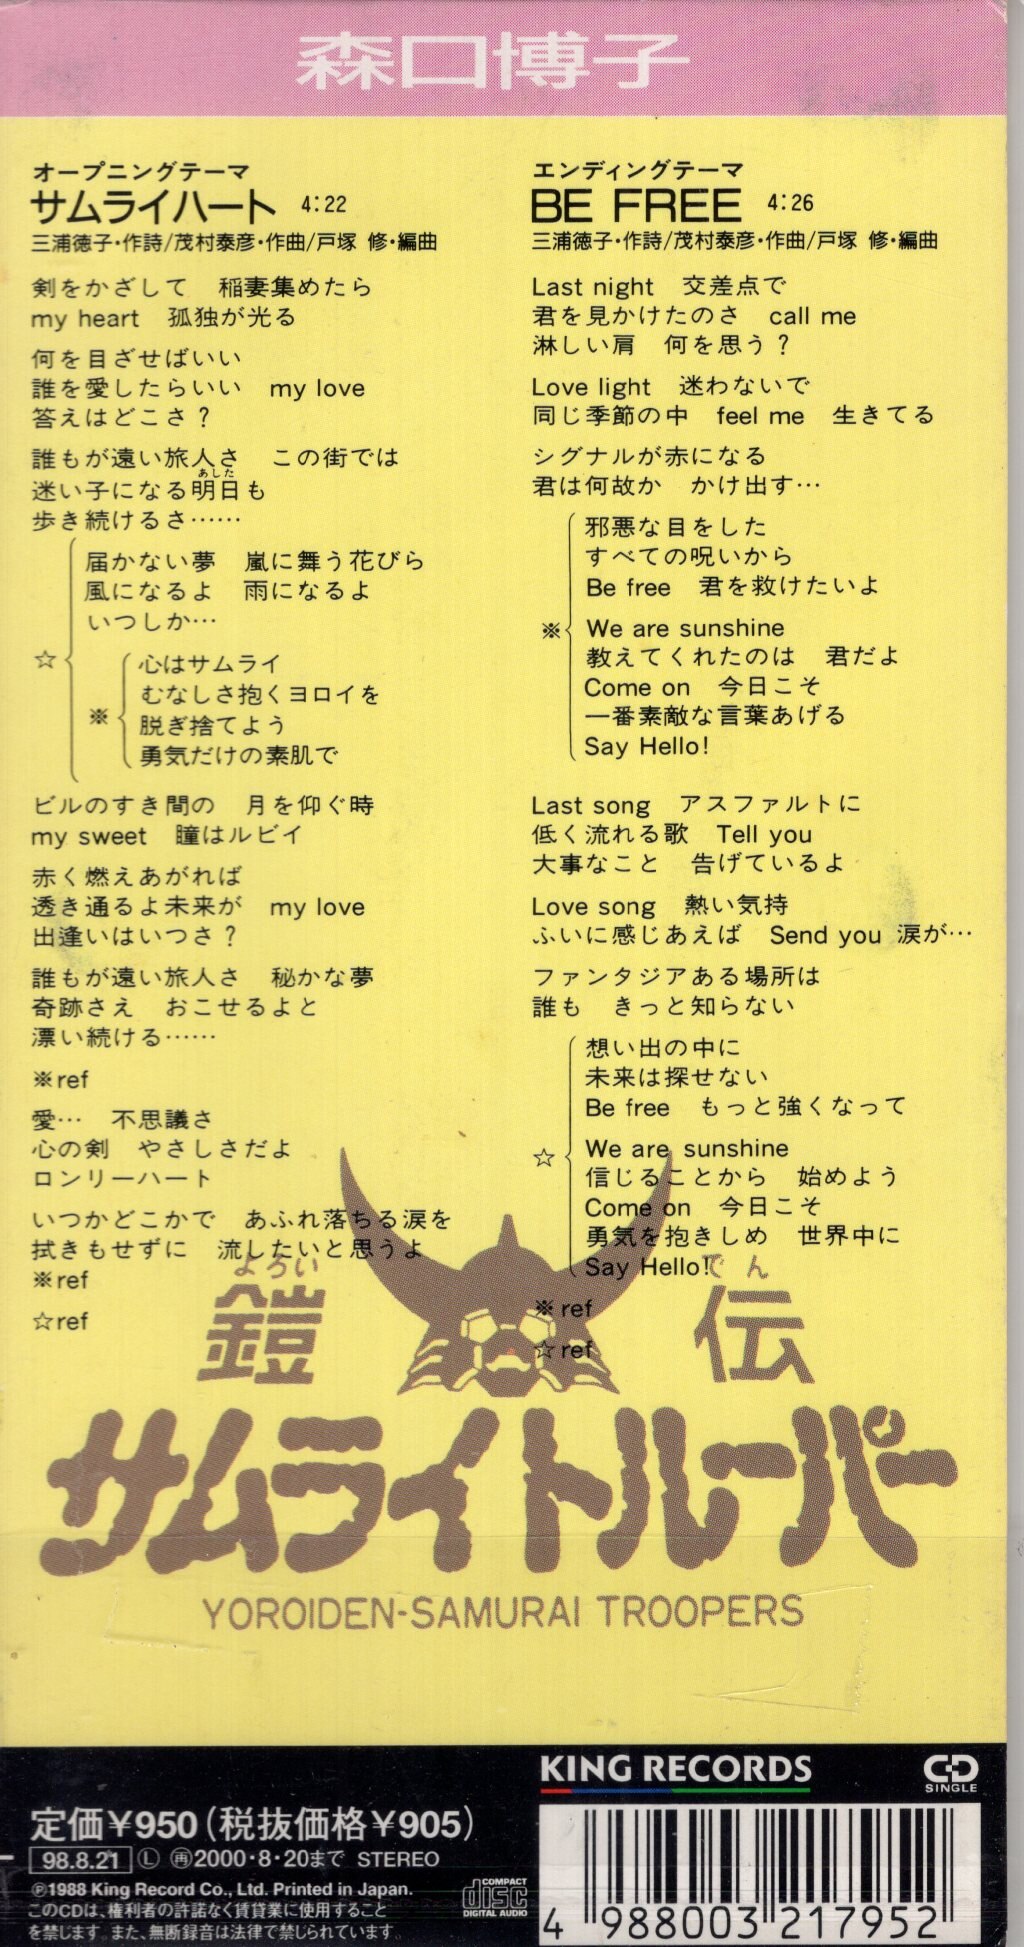 森口博子
オープニングテーマ
サムライハート 4:22
三浦徳子・作詩/茂村泰彦・作曲/戸塚 修・編曲
剣をかざして 稲妻集めたら
my heart 孤独が光る
何を目ざせばいい
誰を愛したらいい my love
答えはどこさ?
誰もが遠い旅人さ この街では
あした
迷い子になる明日も
歩き続けるさ……
☆
届かない夢 嵐に舞う花びら
風になるよ 雨になるよ
いつしか…
※
心はサムライ
むなしさ抱くヨロイを
脱ぎ捨てよう
勇気だけの素肌で
ビルのすき間の 月を仰ぐ時
my sweet 瞳はルビイ
赤く燃えあがれば
透き通るよ未来が my love
出逢いはいつさ?
誰もが遠い旅人さ 秘かな夢
奇跡さえ おこせるよと
漂い続ける……
※ref
愛… 不思議さ
心の剣 やさしさだよ
ロンリーハート
いつかどこかで あふれ落ちる涙を
拭きもせずに 流したいと思うよ
※ref
☆ref
エンディングテーマ
BE FREE 4:26
三浦徳子・作詩/茂村泰彦・作曲/戸塚 修・編曲
Last night 交差点で
君を見かけたのさ call me
淋しい肩 何を思う?
Love light 迷わないで
同じ季節の中 feel me 生きてる
シグナルが赤になる
君は何故か かけ出す…
※
邪悪な目をした
すべての呪いから
Be free 君を救けたいよ
We are sunshine
教えてくれたのは 君だよ
Come on 今日こそ
一番素敵な言葉あげる
Say Hello!
Last song アスファルトに
低く流れる歌 Tell you
大事なこと 告げているよ
Love song 熱い気持
ふいに感じあえば Send you 涙が…
ファンタジアある場所は
誰も きっと知らない
☆
想い出の中に
未来は探せない
Be free もっと強くなって
We are sunshine
信じることから 始めよう
Come on 今日こそ
勇気を抱きしめ 世界中に
Say Hello!
※ref
☆ref
よろい でん
鎧 伝
サムライトルーパー
YOROIDEN-SAMURAI TROOPERS
KING RECORDS
CD
SINGLE
定価¥950(税抜価格¥905)
98.8.21 Ⓛ ㊞2000・8・20まで STEREO
℗1988 King Record Co., Ltd. Printed in Japan.
このCDは、権利者の許諾なく賃貸業に使用すること
を禁じます。また、無断録音は法律で禁じられています。
COMPACT
disc
DIGITAL AUDIO
4 988003 217952